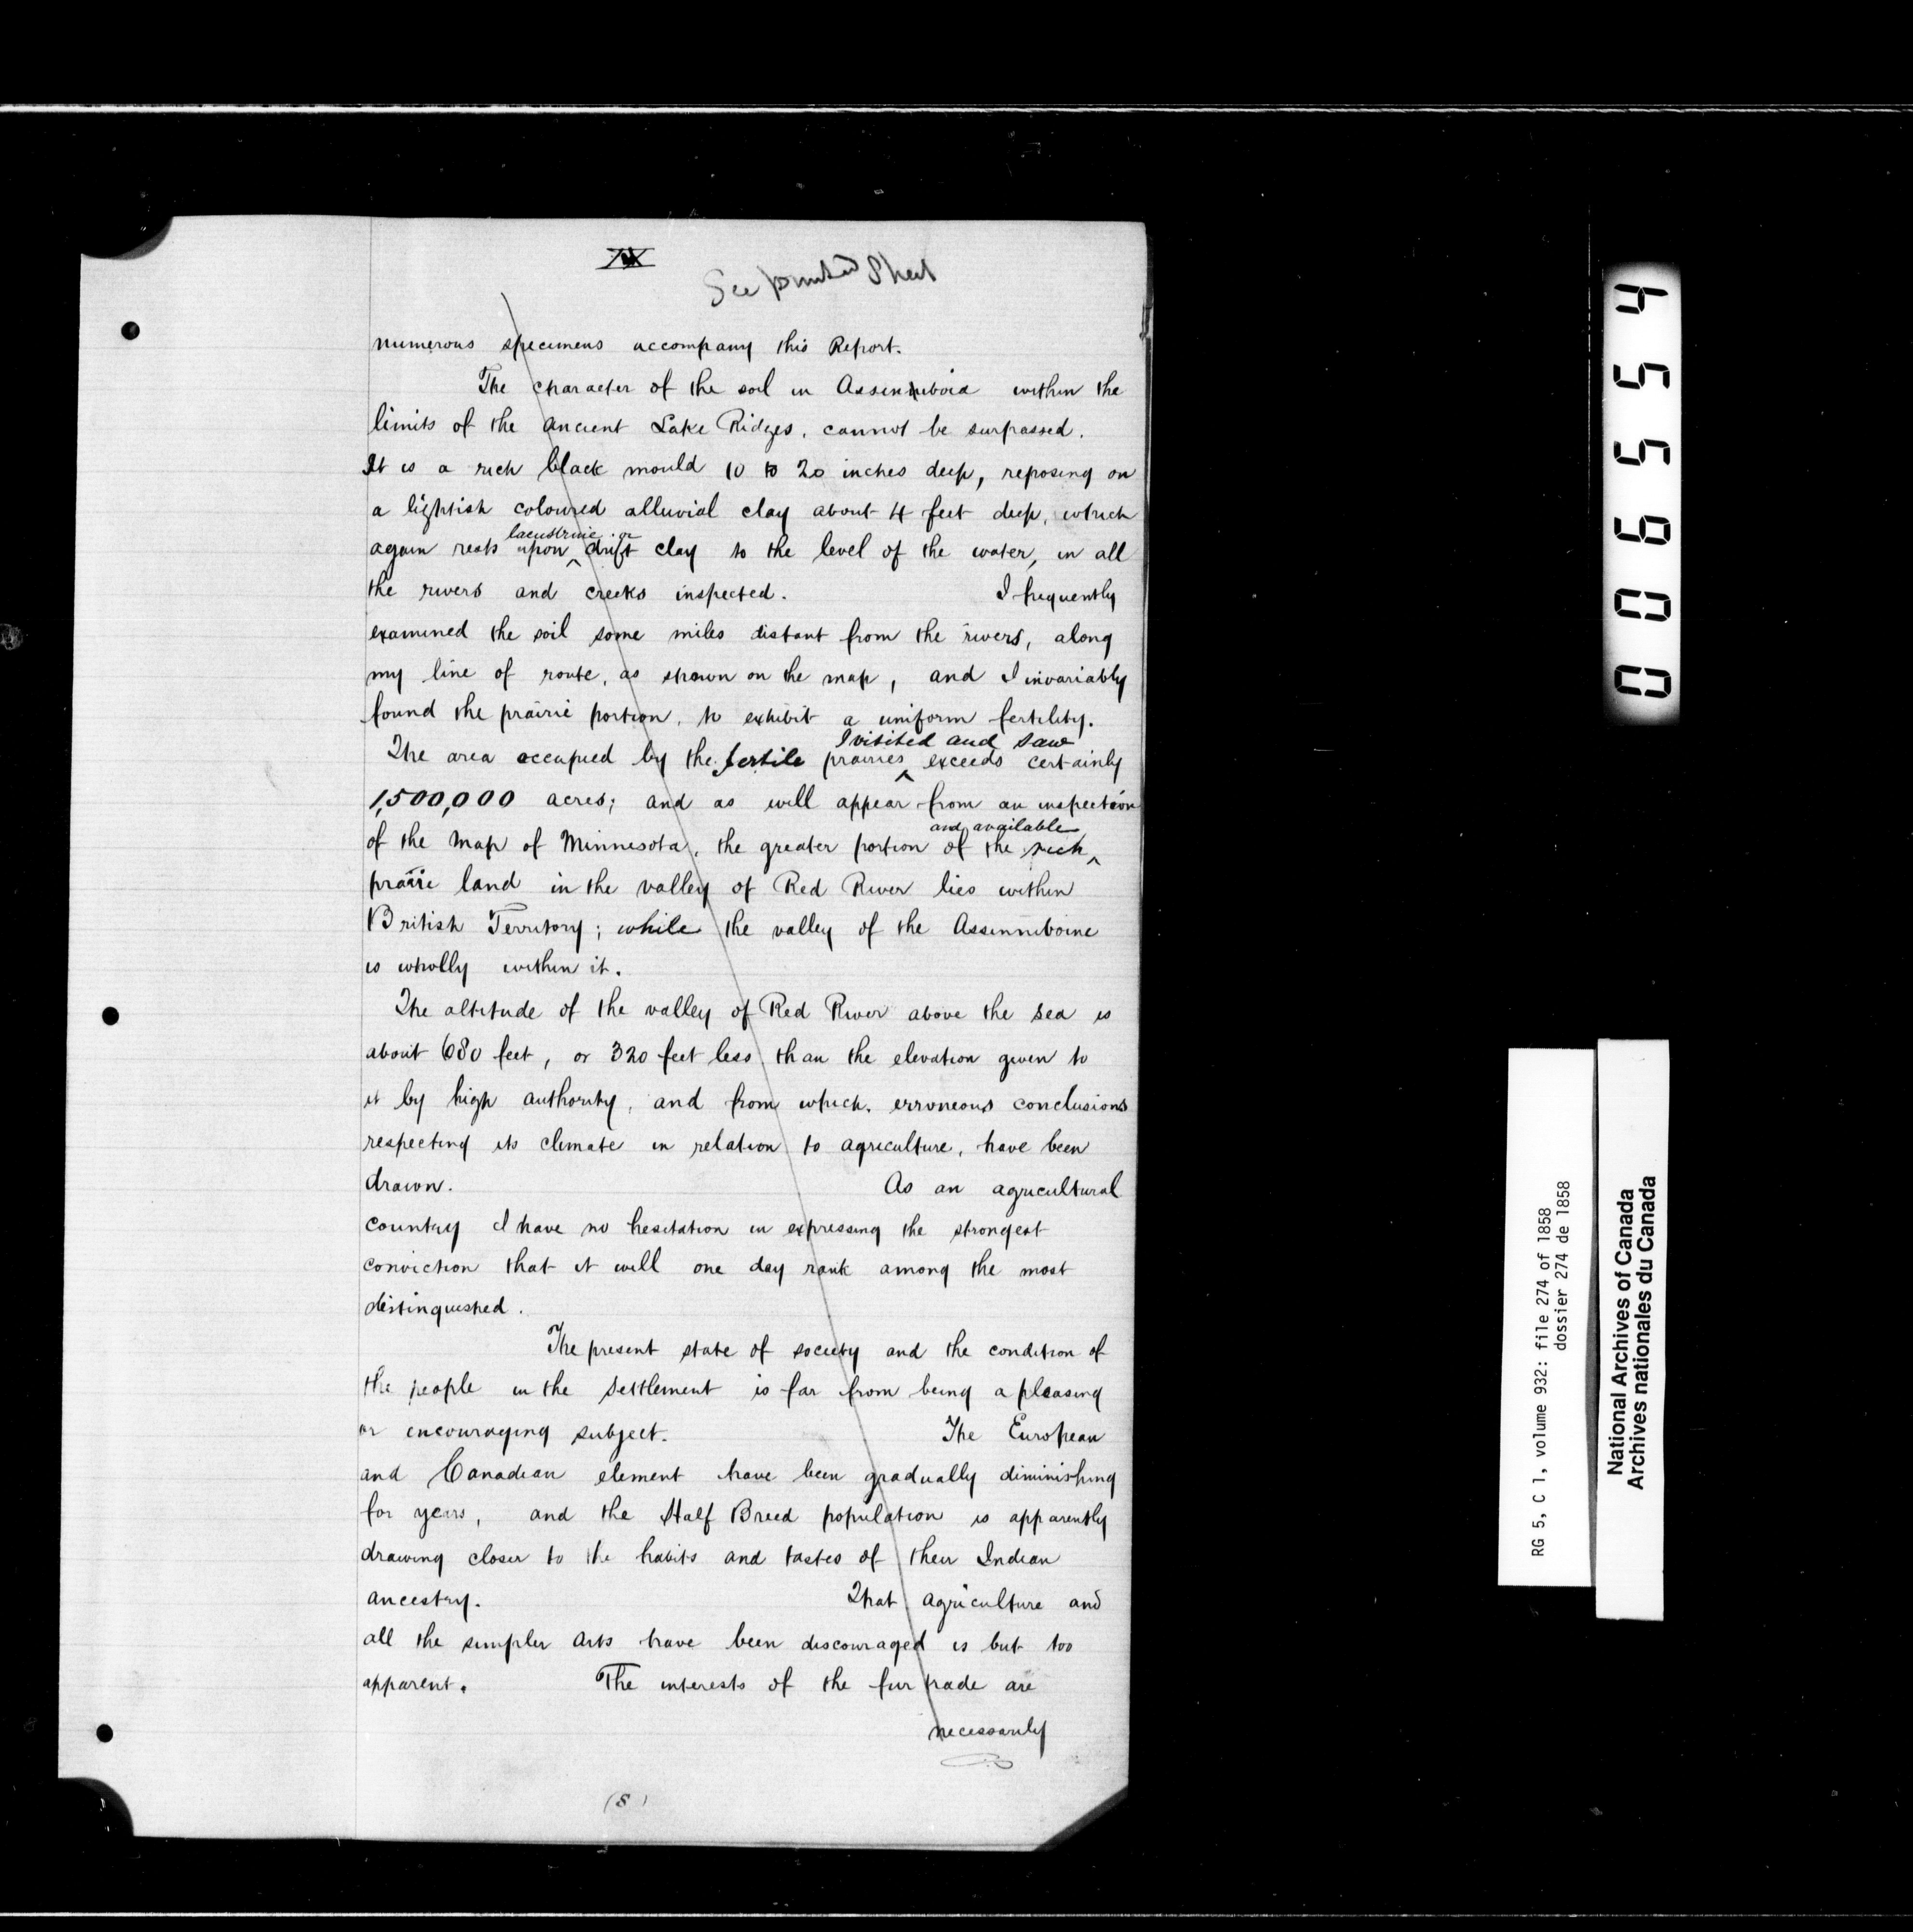 See printed Sheet
numerous specimens accompany this Report.
The character of the soil in Assinniboia within the
limits of the ancient Lake Ridges, cannot be surpassed.
It is a rich black mould 10 to 20 inches deep, reposing on
a lightish coloured alluvial clay about 4 feet deep, which
lacustrine or
again rests upon ^ drift clay to the level of the water, in all
the rivers and creeks inspected. I frequently
examined the soil some miles distant from the rivers, along
my line of route, as shown on the map, and I invariably
found the prairie portion, to exhibit a uniform fertility.
I visited and saw
The area occupied by the fertile prairies ^ exceeds certainly
1,500,000 acres; and as will appear from an inspection
and available
of the map of Minnesota, the greater portion of the rich ^
prairie land in the valley of Red River lies within
British Territory; while the valley of the Assinniboine
is wholly within it.
The altitude of the valley of Red River above the sea is
about 680 feet, or 320 feet less than the elevation given to
it by high authority, and from which, erroneous conclusions
respecting its climate in relation to agriculture, have been
drawn. As an agricultural
country I have no hesitation in expressing the strongest
conviction that it will one day rank among the most
distinguished.
The present state of society and the condition of
the people in the Settlement is far from being a pleasing
or encouraging subject. The European
and Canadian element have been gradually diminishing
for years, and the Half Breed population is apparently
drawing closer to the habits and tastes of their Indian
ancestry. That agriculture and
all the simpler arts have been discouraged is but too
apparent. The interests of the fur trade are
necessarily
(8)
006554
RG 5, C 1, volume 932: file 274 of 1858
dossier 274 de 1858
National Archives of Canada
Archives nationales du Canada